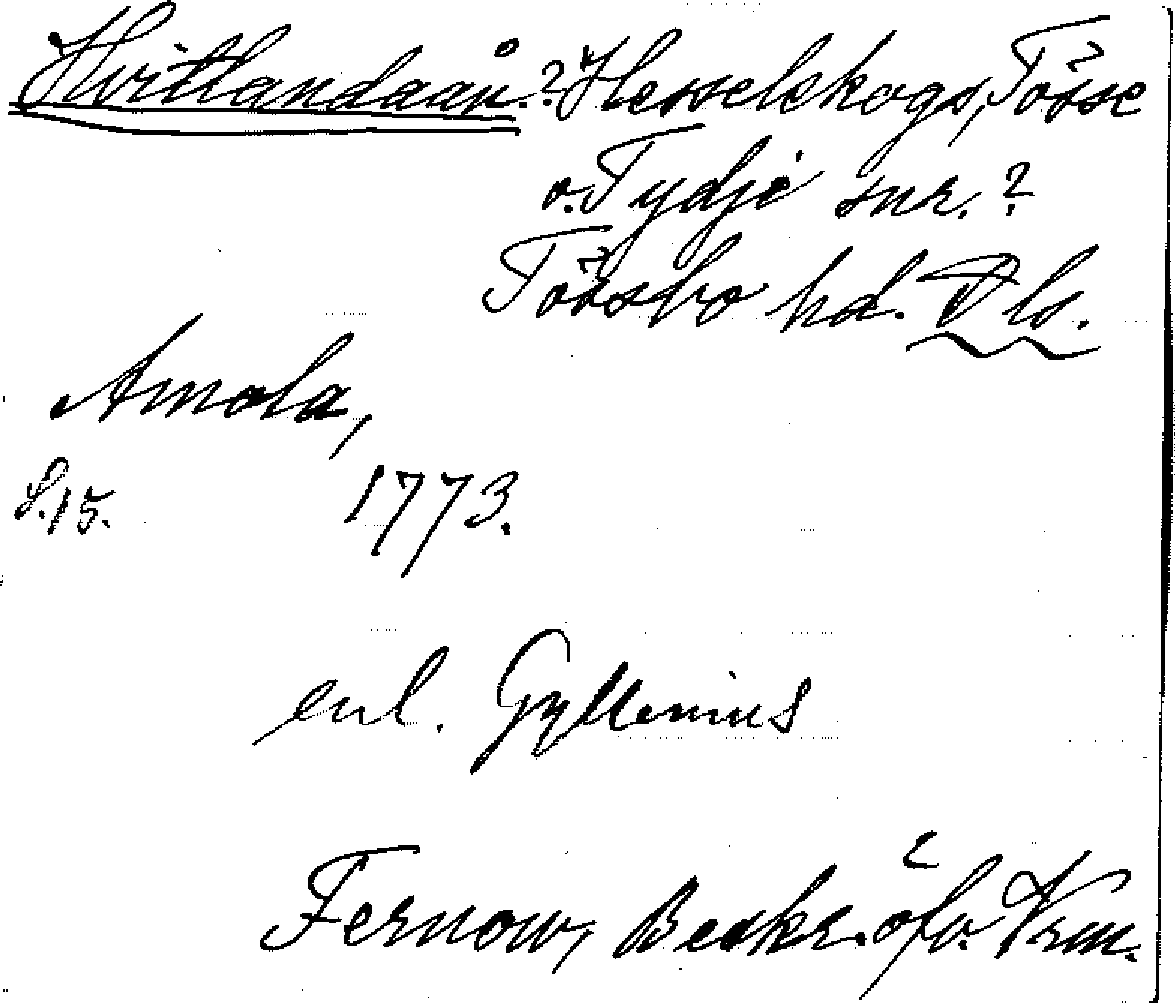 Hvitlandaån. ? Hesselskogs, Tösse
o. Tydje snr. ?
Tössbo hd. Dls.
Amola,
S. 15. 1773.
enl. Gyllenius
Fernow, Beskr. öfv. Vrm.